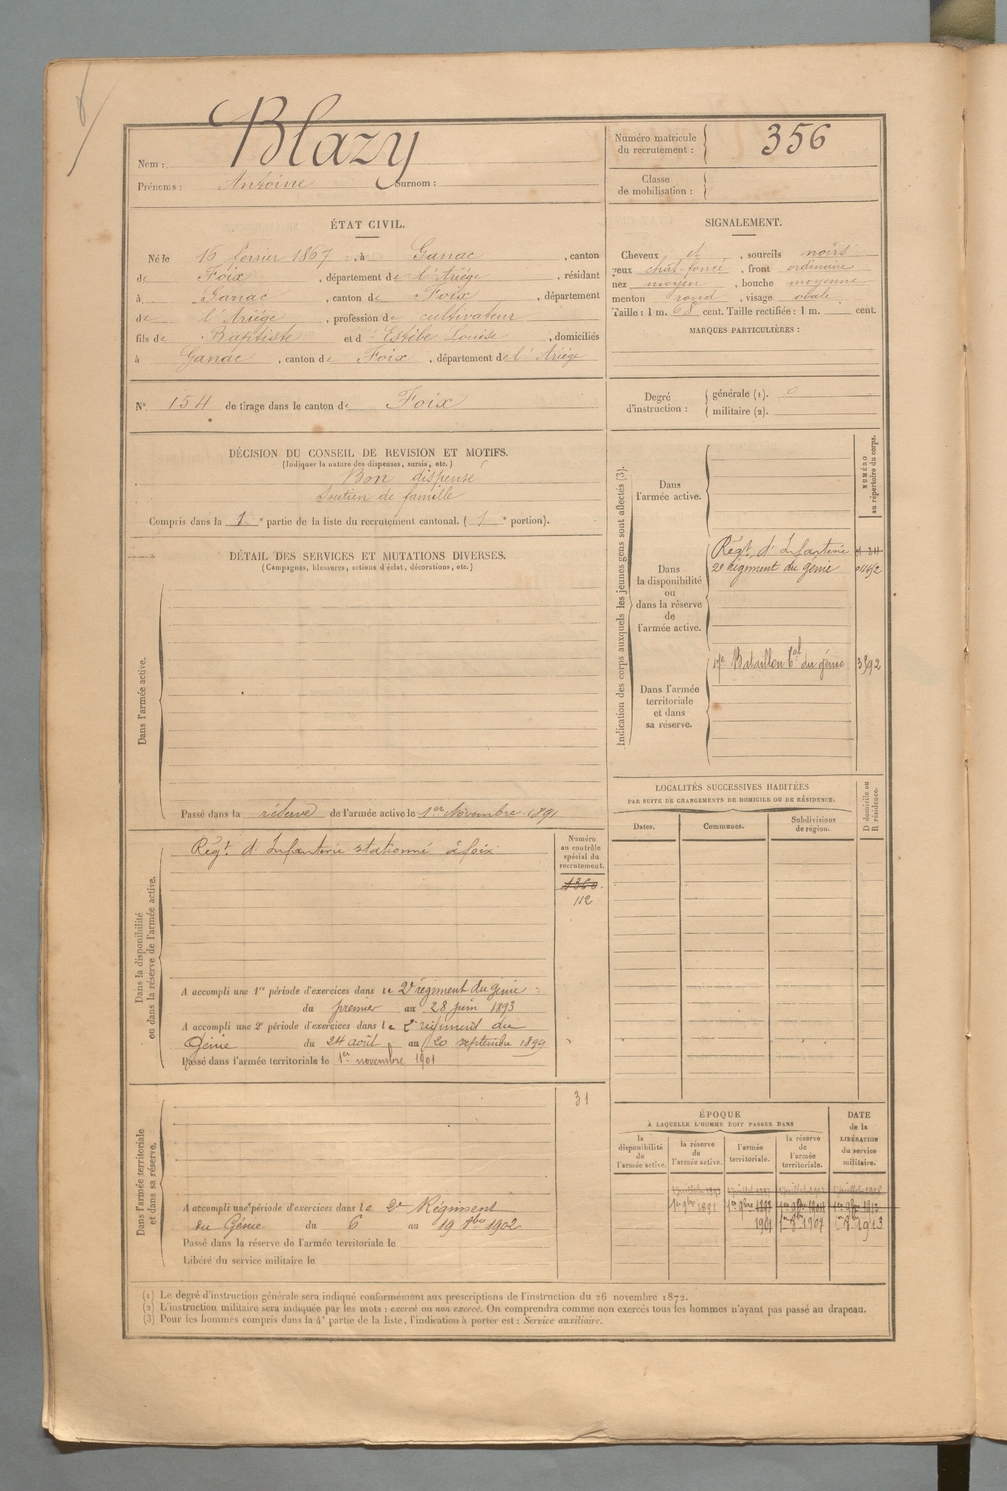 Nom : Blazy
Prénoms : Antoine Surnom :
Numéro matricule
du recrutement : 356
Classe
de mobilisation :
ÉTAT CIVIL.
Né le 16 février 1867, à Ganac, canton
de Foix, département de l'Ariége, résidant
à Ganac, canton de Foix, département
de l'Ariége, profession de cultivateur
fils de Baptiste et d' Estèbe Louise, domiciliés
à Ganac, canton de Foix, département de l'Ariége
N° 154 de tirage dans le canton de Foix
SIGNALEMENT.
Cheveux et, sourcils noirs
yeux chat-foncé, front ordinaire
nez moyen, bouche moyenne
menton rond, visage ovale
Taille : 1 m. 68 cent. Taille rectifiée : 1 m. cent.
MARQUES PARTICULIÈRES :
Degré
d'instruction :
générale (1). 0
militaire (2).
DÉCISION DU CONSEIL DE REVISION ET MOTIFS.
(Indiquer la nature des dispenses, sursis, etc.)
Bon dispensé
Soutien de famille
Compris dans la 1e partie de la liste du recrutement cantonal. (1e portion).
DÉTAIL DES SERVICES ET MUTATIONS DIVERSES.
(Campagnes, blessures, actions d'éclat, décorations, etc.)
Dans l'armée active.
Passé dans la réserve de l'armée active le 1er Novembre 1891
Indication des corps auxquels les jeunes gens sont affectés (3).
NUMÉRO
au répertoire du corps.
Dans
l'armée active.
Dans
la disponibilité
ou
dans la réserve
de
l'armée active.
Régt d'Infanterie
2e Régiment du génie
Dans l'armée
territoriale
et dans
sa réserve.
17e Bataillon tal du génie 3592
Dans la disponibilité
ou dans la réserve de l'armée active.
Régt d'Infanterie stationné à Foix
Numéro
au contrôle
spécial du
recrutement.
112
A accompli une 1re période d'exercices dans le 2e régiment du génie
du premier au 28 juin 1893
A accompli une 2e période d'exercices dans le 2e régiment du
Génie du 24 août au 20 septembre 1894
Passé dans l'armée territoriale le 1er novembre 1901
LOCALITÉS SUCCESSIVES HABITÉES
PAR SUITE DE CHANGEMENTS DE DOMICILE OU DE RÉSIDENCE.
Dates.
Communes.
Subdivisions
de région.
D domicile ou
R résidence.
Dans l'armée territoriale
et dans sa réserve.
31
A accompli une période d'exercices dans le 2e Régiment
du Génie du 6 au 19 1902
Passé dans la réserve de l'armée territoriale le
Libéré du service militaire le
ÉPOQUE
À LAQUELLE L'HOMME DOIT PASSER DANS
DATE
de la
LIBÉRATION
du service
militaire.
la
disponibilité
de
l'armée active.
la réserve
de
l'armée active.
l'armée
territoriale.
la réserve
de
l'armée
territoriale.
1er 9bre 1891
1901 1907 1913
(1) Le degré d'instruction générale sera indiqué conformément aux prescriptions de l'instruction du 26 novembre 1872.
(2) L'instruction militaire sera indiquée par les mots : exercé ou non exercé. On comprendra comme non exercés tous les hommes n'ayant pas passé au drapeau.
(3) Pour les hommes compris dans la 4e partie de la liste, l'indication à porter est : Service auxiliaire.